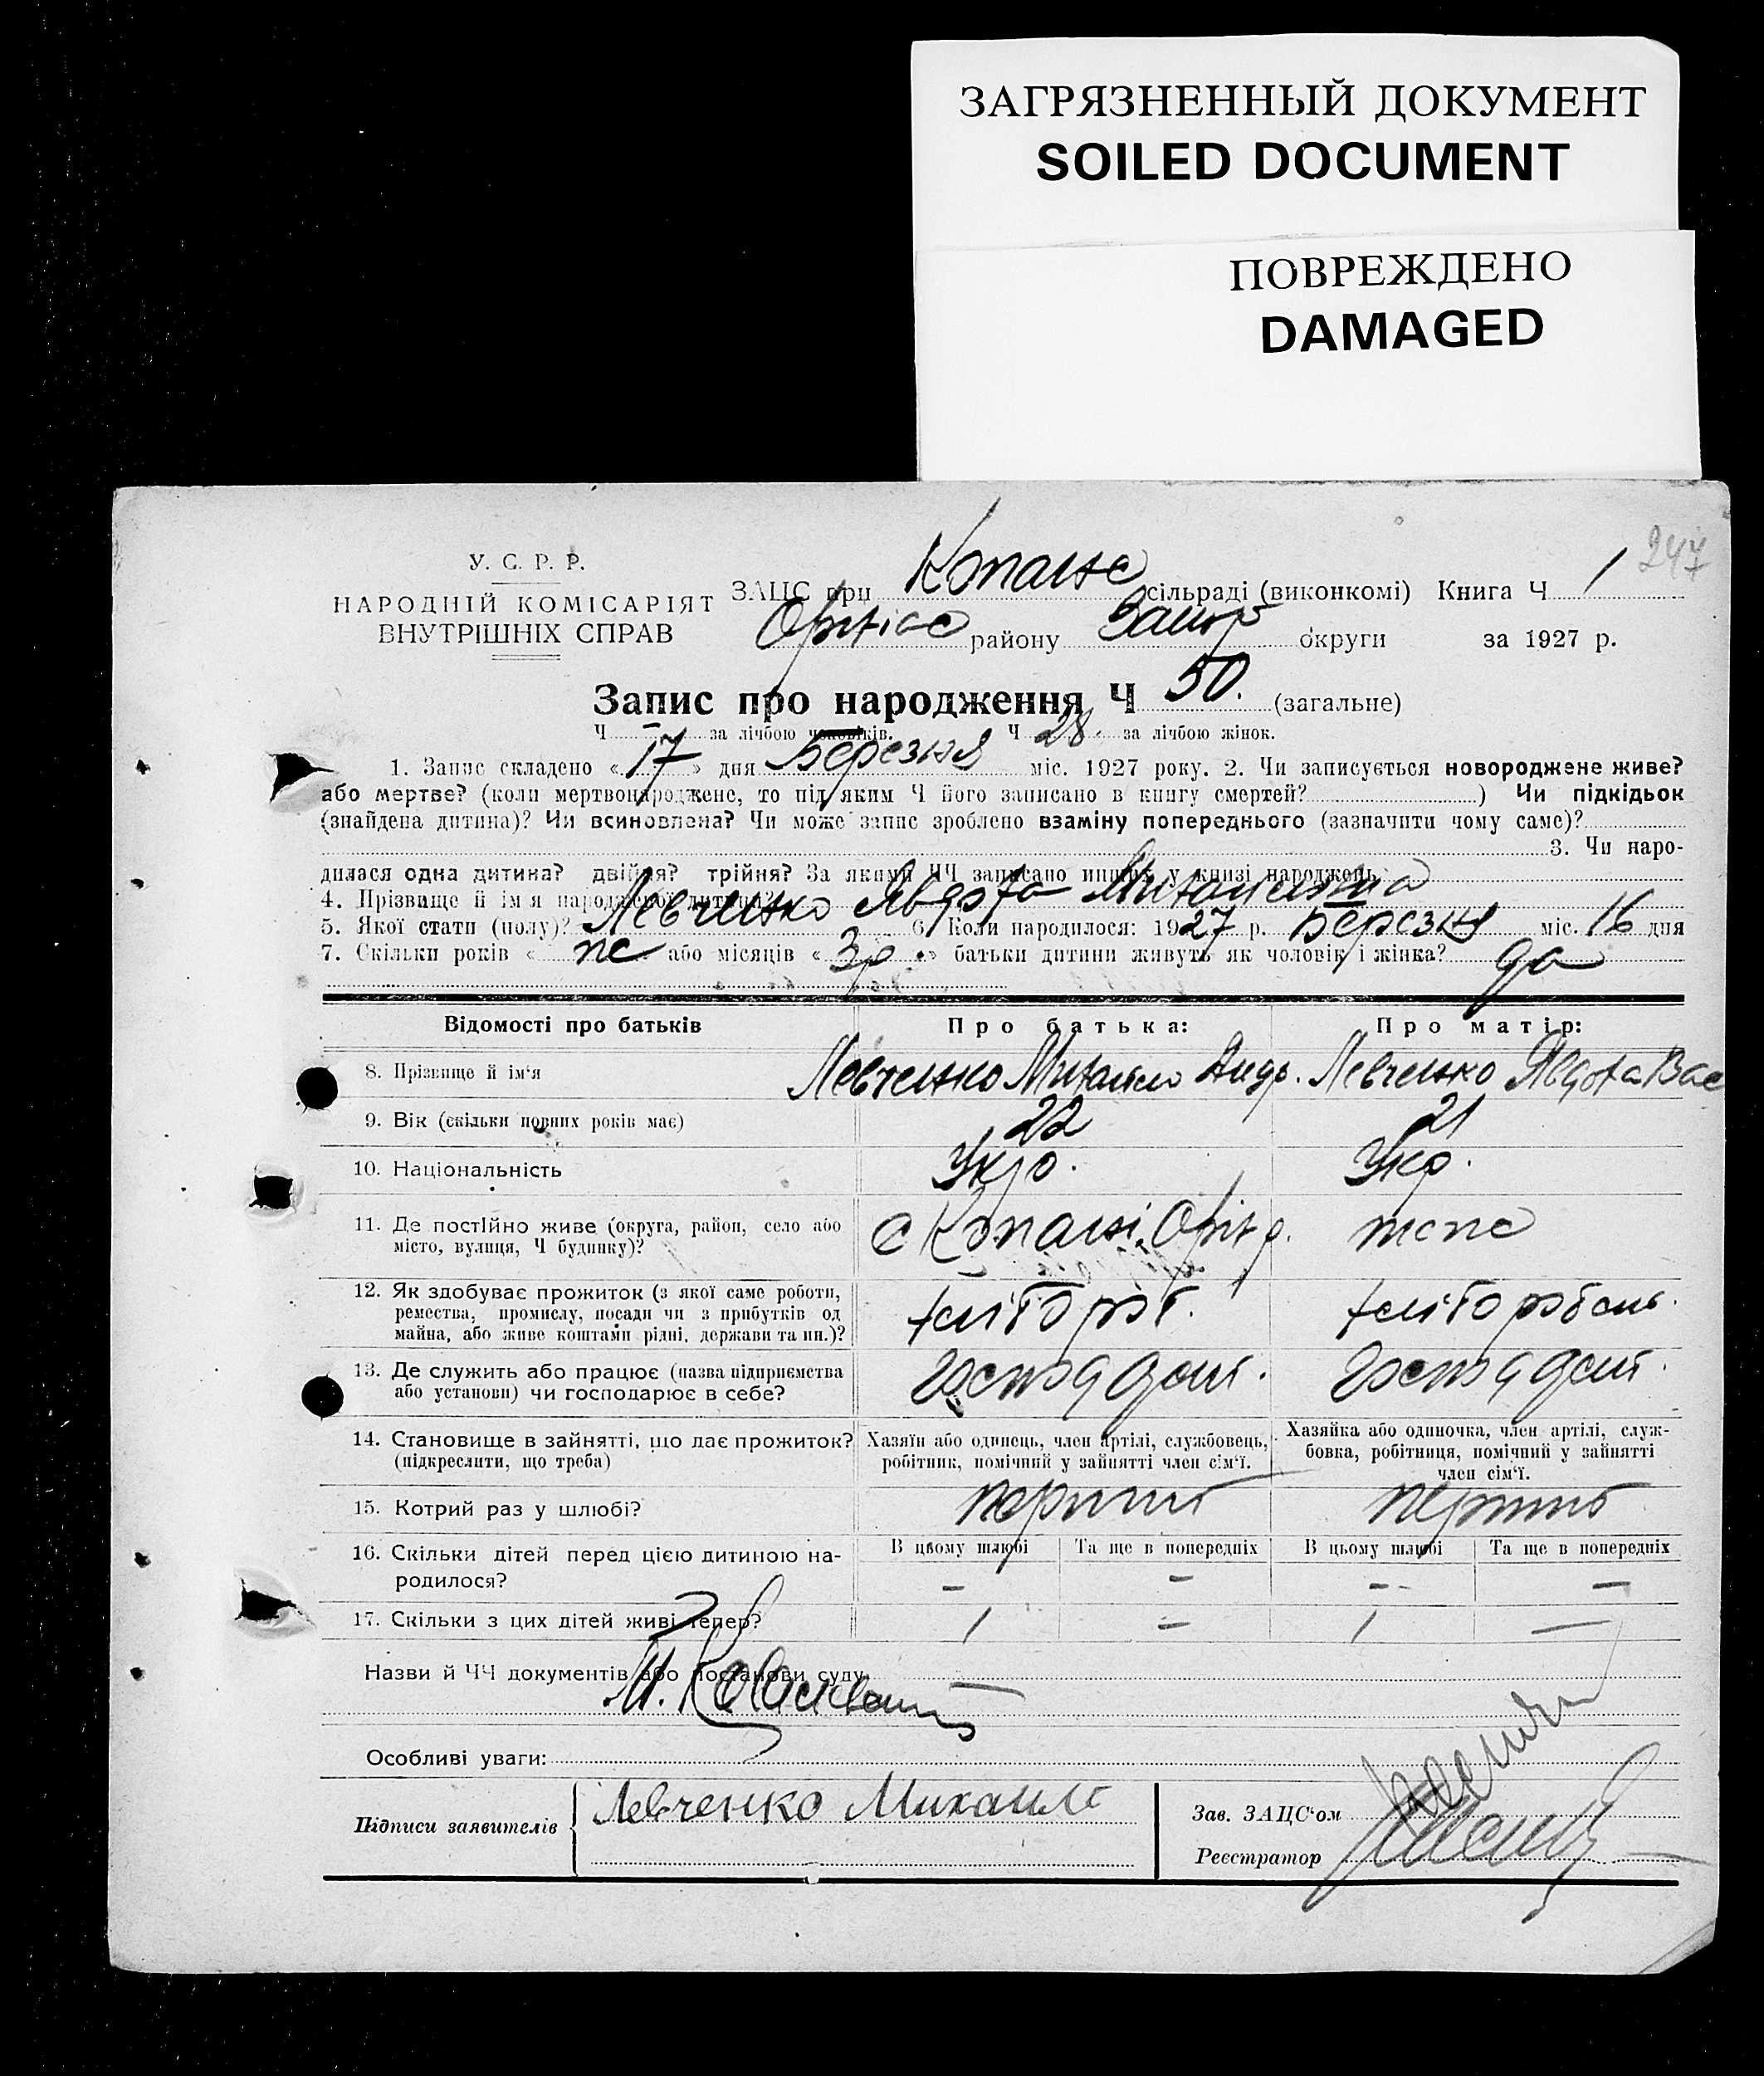 ЗАГРЯЗНЕННЫЙ ДОКУМЕНТ
SOILED DOCUMENT
ПОВРЕЖДЕНО
DAMAGED
247
У. С. Р. Р.
НАРОДНІЙ КОМІСАРІЯТ
ВНУТРІШНІХ СПРАВ
ЗАЦС при Копане сільраді (виконкомі) Книга Ч 1
Оріхівс району Запор округи за 1927 р.
Запис про народження Ч 50. (загальне)
Ч – за лічбою чоловіків. Ч 28. за лічбою жінок.
1. Запис складено « 17 » дня Березня міс. 1927 року. 2. Чи записується новороджене живе?
або мертве? (коли мертвонароджене, то під яким Ч його записано в книгу смертей? ) Чи підкідьок
(знайдена дитина)? Чи всиновлена? Чи може запис зроблено взаміну попереднього (зазначити чому саме)?
3. Чи наро-
дилася одна дитина? двійня? трійня? За якими ЧЧ записано инших у книзі народжень:
4. Прізвище й ім'я народженої дитини? Левченко Явдоха Михайловна
5. Якої стати (полу)? 6. Коли народилося: 1927 р. Березня міс. 16 дня
7. Скільки років « або місяців « 3р » батьки дитини живуть як чоловік і жінка? да
Відомості про батьків Про батька: Про матір:
8. Прізвище й ім'я Левченко Михайло Андр. Левченко Явдоха Вас
9. Вік (скільки повних років має) 22 21
10. Національність Укр. Укр.
11. Де постійно живе (округа, район, село або
місто, вулиця, Ч будинку)? с Копані, Оріх р. тепе
12. Як здобуває прожиток (з якої саме роботи,
ремества, промислу, посади чи з прибутків од
майна, або живе коштами рідні, держави та ин.)? хлібороб. хліборобень.
13. Де служить або працює (назва підприємства
або установи) чи господарює в себе?
14. Становище в зайнятті, що дає прожиток?
(підкреслити, що треба)
Хазяїн або одинець, член артілі, службовець,
робітник, помічний у зайнятті член сім'ї.
Хазяйка або одиночка, член артілі, служ-
бовка, робітниця, помічний у зайнятті
член сім'ї.
15. Котрий раз у шлюбі? перший перший
16. Скільки дітей перед цією дитиною на-
родилося?
В цьому шлюбі Та ще в попередніх В цьому шлюбі Та ще в попередніх
– – – –
17. Скільки з цих дітей живі тепер? 1 – 1 –
Назви й ЧЧ документів або постанови суду:
Особливі уваги:
Підписи заявителів Левченко Михаил
Зав. ЗАЦС'ом
Реєстратор